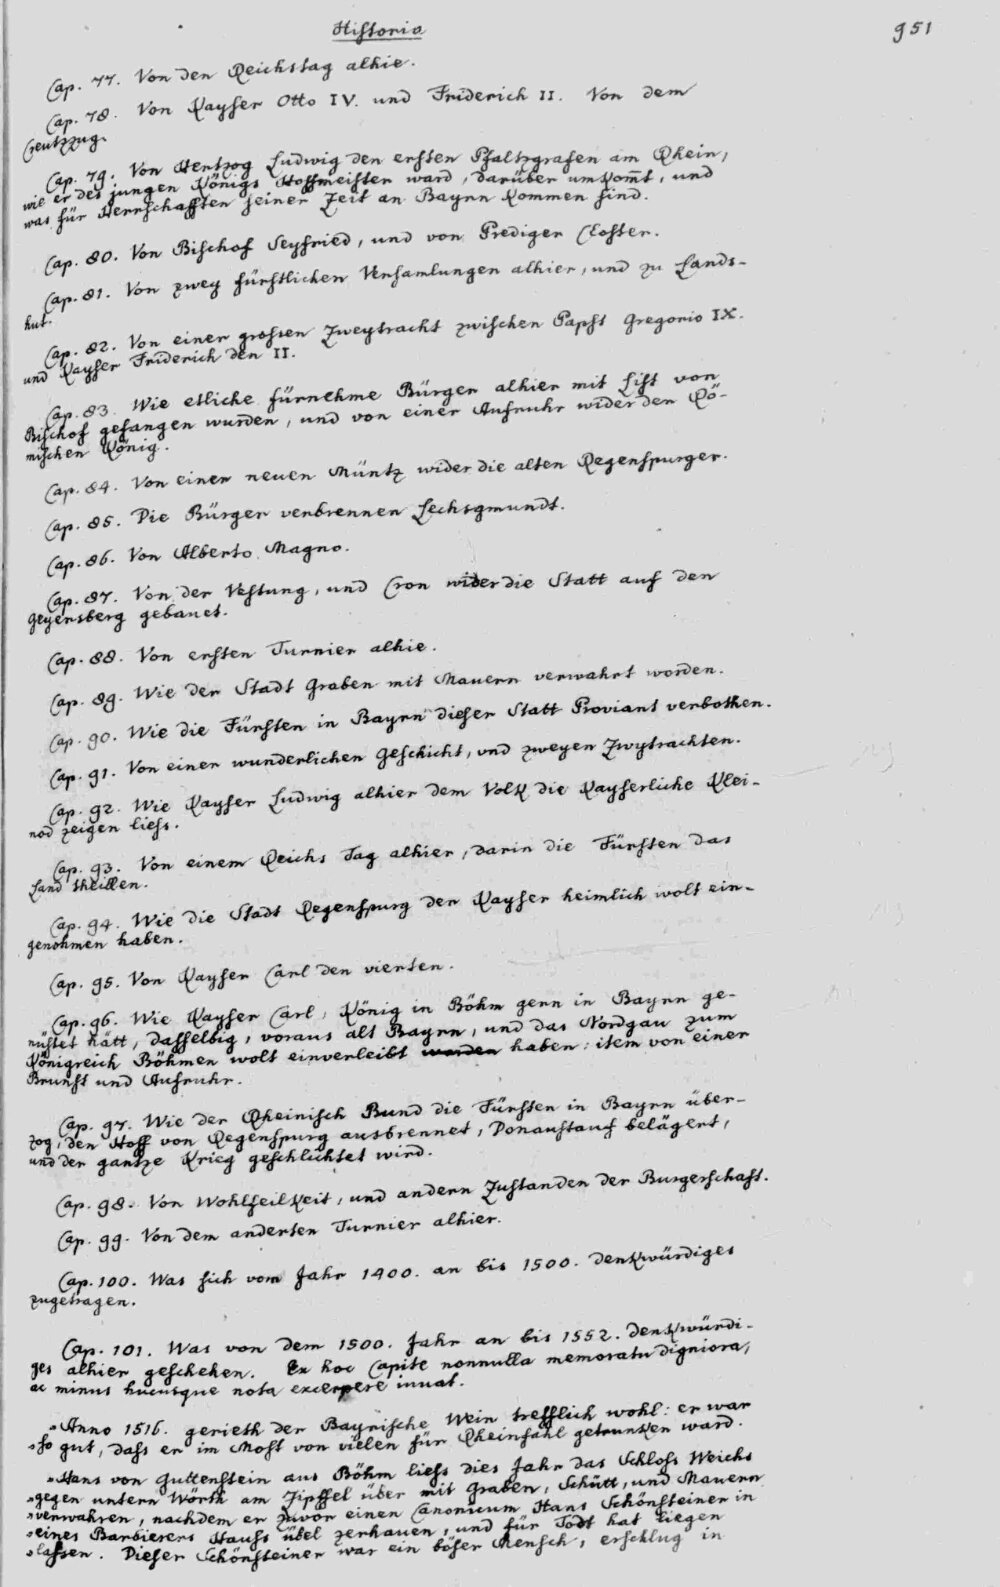 Historia
951
Cap. 77. Von den Reichstag alhie.
Cap. 78. Von Kayser Otto IV. und Friderich II. Von dem
Creutzzug.
Cap. 79. Von Hertzog Ludwig den ersten Pfaltzgrafen am Rhein,
wie er des jungen Königs Hoffmeister ward, darüber umkom̅t, und
was für Herrschafften seiner Zeit an Bayrn kommen sind.
Cap. 80. Von Bischof Seyfried, und von Prediger Closter.
Cap. 81. Von zwey fürstlichen Versamlungen alhier, und zu Lands-
hut.
Cap. 82. Von einer grossen Zweytracht zwischen Papst Gregorio IX.
und Kayser Friderich den II.
Cap. 83. Wie etliche fürnehme Bürger alhier mit List von
Bischof gefangen wurden, und von einer Aufruhr wider den Rö-
mischen König.
Cap. 84. Von einer neuen Müntz wider die alten Regenspurger.
Cap. 85. Die Bürger verbrennen Lechsgmundt.
Cap. 86. Von Alberto Magno.
Cap. 87. Von der Vestung, und Cron wider die Statt auf den
Geyersberg gebauet.
Cap. 88. Von ersten Turnier alhie.
Cap. 89. Wie der Stadt Graben mit Mauern verwahrt worden.
Cap. 90. Wie die Fürsten in Bayrn dieser Statt Proviant verbothen.
Cap. 91. Von einer wunderlichen Geschicht, und zweyen Zwytrachten.
Cap. 92. Wie Kayser Ludwig alhier dem Volk die Kayserliche Klei-
nod zeigen liess.
Cap. 93. Von einem Reichs Tag alhier, darin die Fürsten das
Land theillen.
Cap. 94. Wie die Stadt Regenspurg der Kayser heimlich wolt ein-
genohmen haben.
Cap. 95. Von Kayser Carl den vierten.
Cap. 96. Wie Kayser Carl, König in Böhm gern in Bayrn ge-
nistet hätt, dasselbig, voraus alt Bayrn, und das Nordgau zum
Königreich Böhmen wolt einverleibt worden haben: item von einer
Brunst und Aufruhr.
Cap. 97. Wie der Rheinisch Bund die Fürsten in Bayrn über-
zog, den Hoff von Regenspurg ausbrennet, Donaustauf belägert,
und der gantze Krieg geschlichtet wird.
Cap. 98. Von Wohlfeilkeit, und andern Zustanden der Burgerschaft.
Cap. 99. Von dem anderten Turnier alhier.
Cap. 100. Was sich vom Jahr 1400. an bis 1500. denkwürdiges
zugetragen.
Cap. 101. Was von dem 1500. Jahr an bis 1552. denkwürdi-
ges alhier geschehen. Ex hoc Capite nonnulla memoratu digniora,
ac minus hucusque nota excerpere iuvat.
»Anno 1516. gerieth der Bayrische Wein trefflich wohl: er war
»so gut, dass er im Most von vielen für Rheinfahl getrunken ward.
»Hans von Guttenstein aus Böhm liess dies Jahr das Schloss Weichs
»gegen untern Wörth am Zipffel über mit Graben, Schütt, und Mauern
»verwahren, nachdem er zuvor einen Canonicum Hans Schönsteiner in
»eines Barbierers Hauss übel zerhauen, und für Todt hat liegen
»lassen. Dieser Schönsteiner war ein böser Mensch, erschlug in